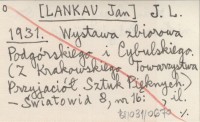 [LANKAU Jan] J. L.
1931. Wystawa zbiorowa
Podgórskiego i Cybulskiego.
(Z Krakowskiego Towarzystwa
Przyjaciół Sztuk Pięknych)
– Światowid 8, nr 16: il.